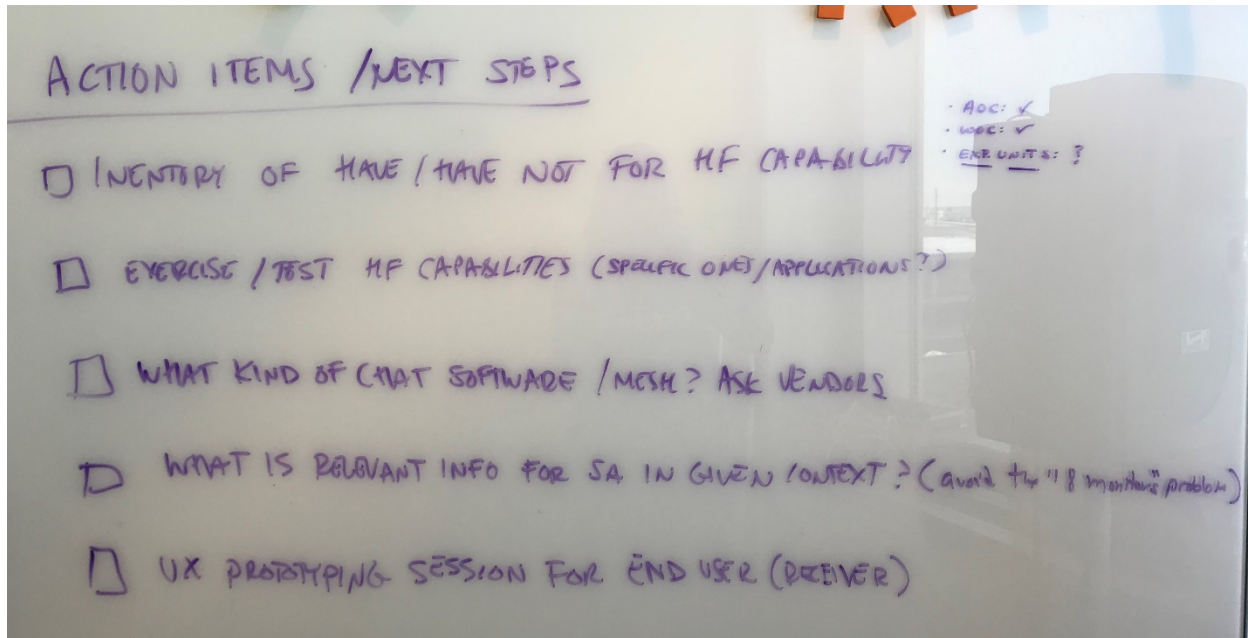 ACTION ITEMS / NEXT STEPS
INENTORY OF HAVE / HAVE NOT FOR HF CAPABILITY
· AOC: ✓
· WOC: ✓
· EXP. UNITS: ?
EXERCISE / TEST HF CAPABILITIES (SPECIFIC ONES/APPLICATIONS?)
WHAT KIND OF CHAT SOFTWARE / MESH? ASK VENDORS
WHAT IS RELEVANT INFO FOR SA IN GIVEN CONTEXT? (avoid the "18 monitors" problem)
UX PROTOTYPING SESSION FOR END USER (RECEIVER)